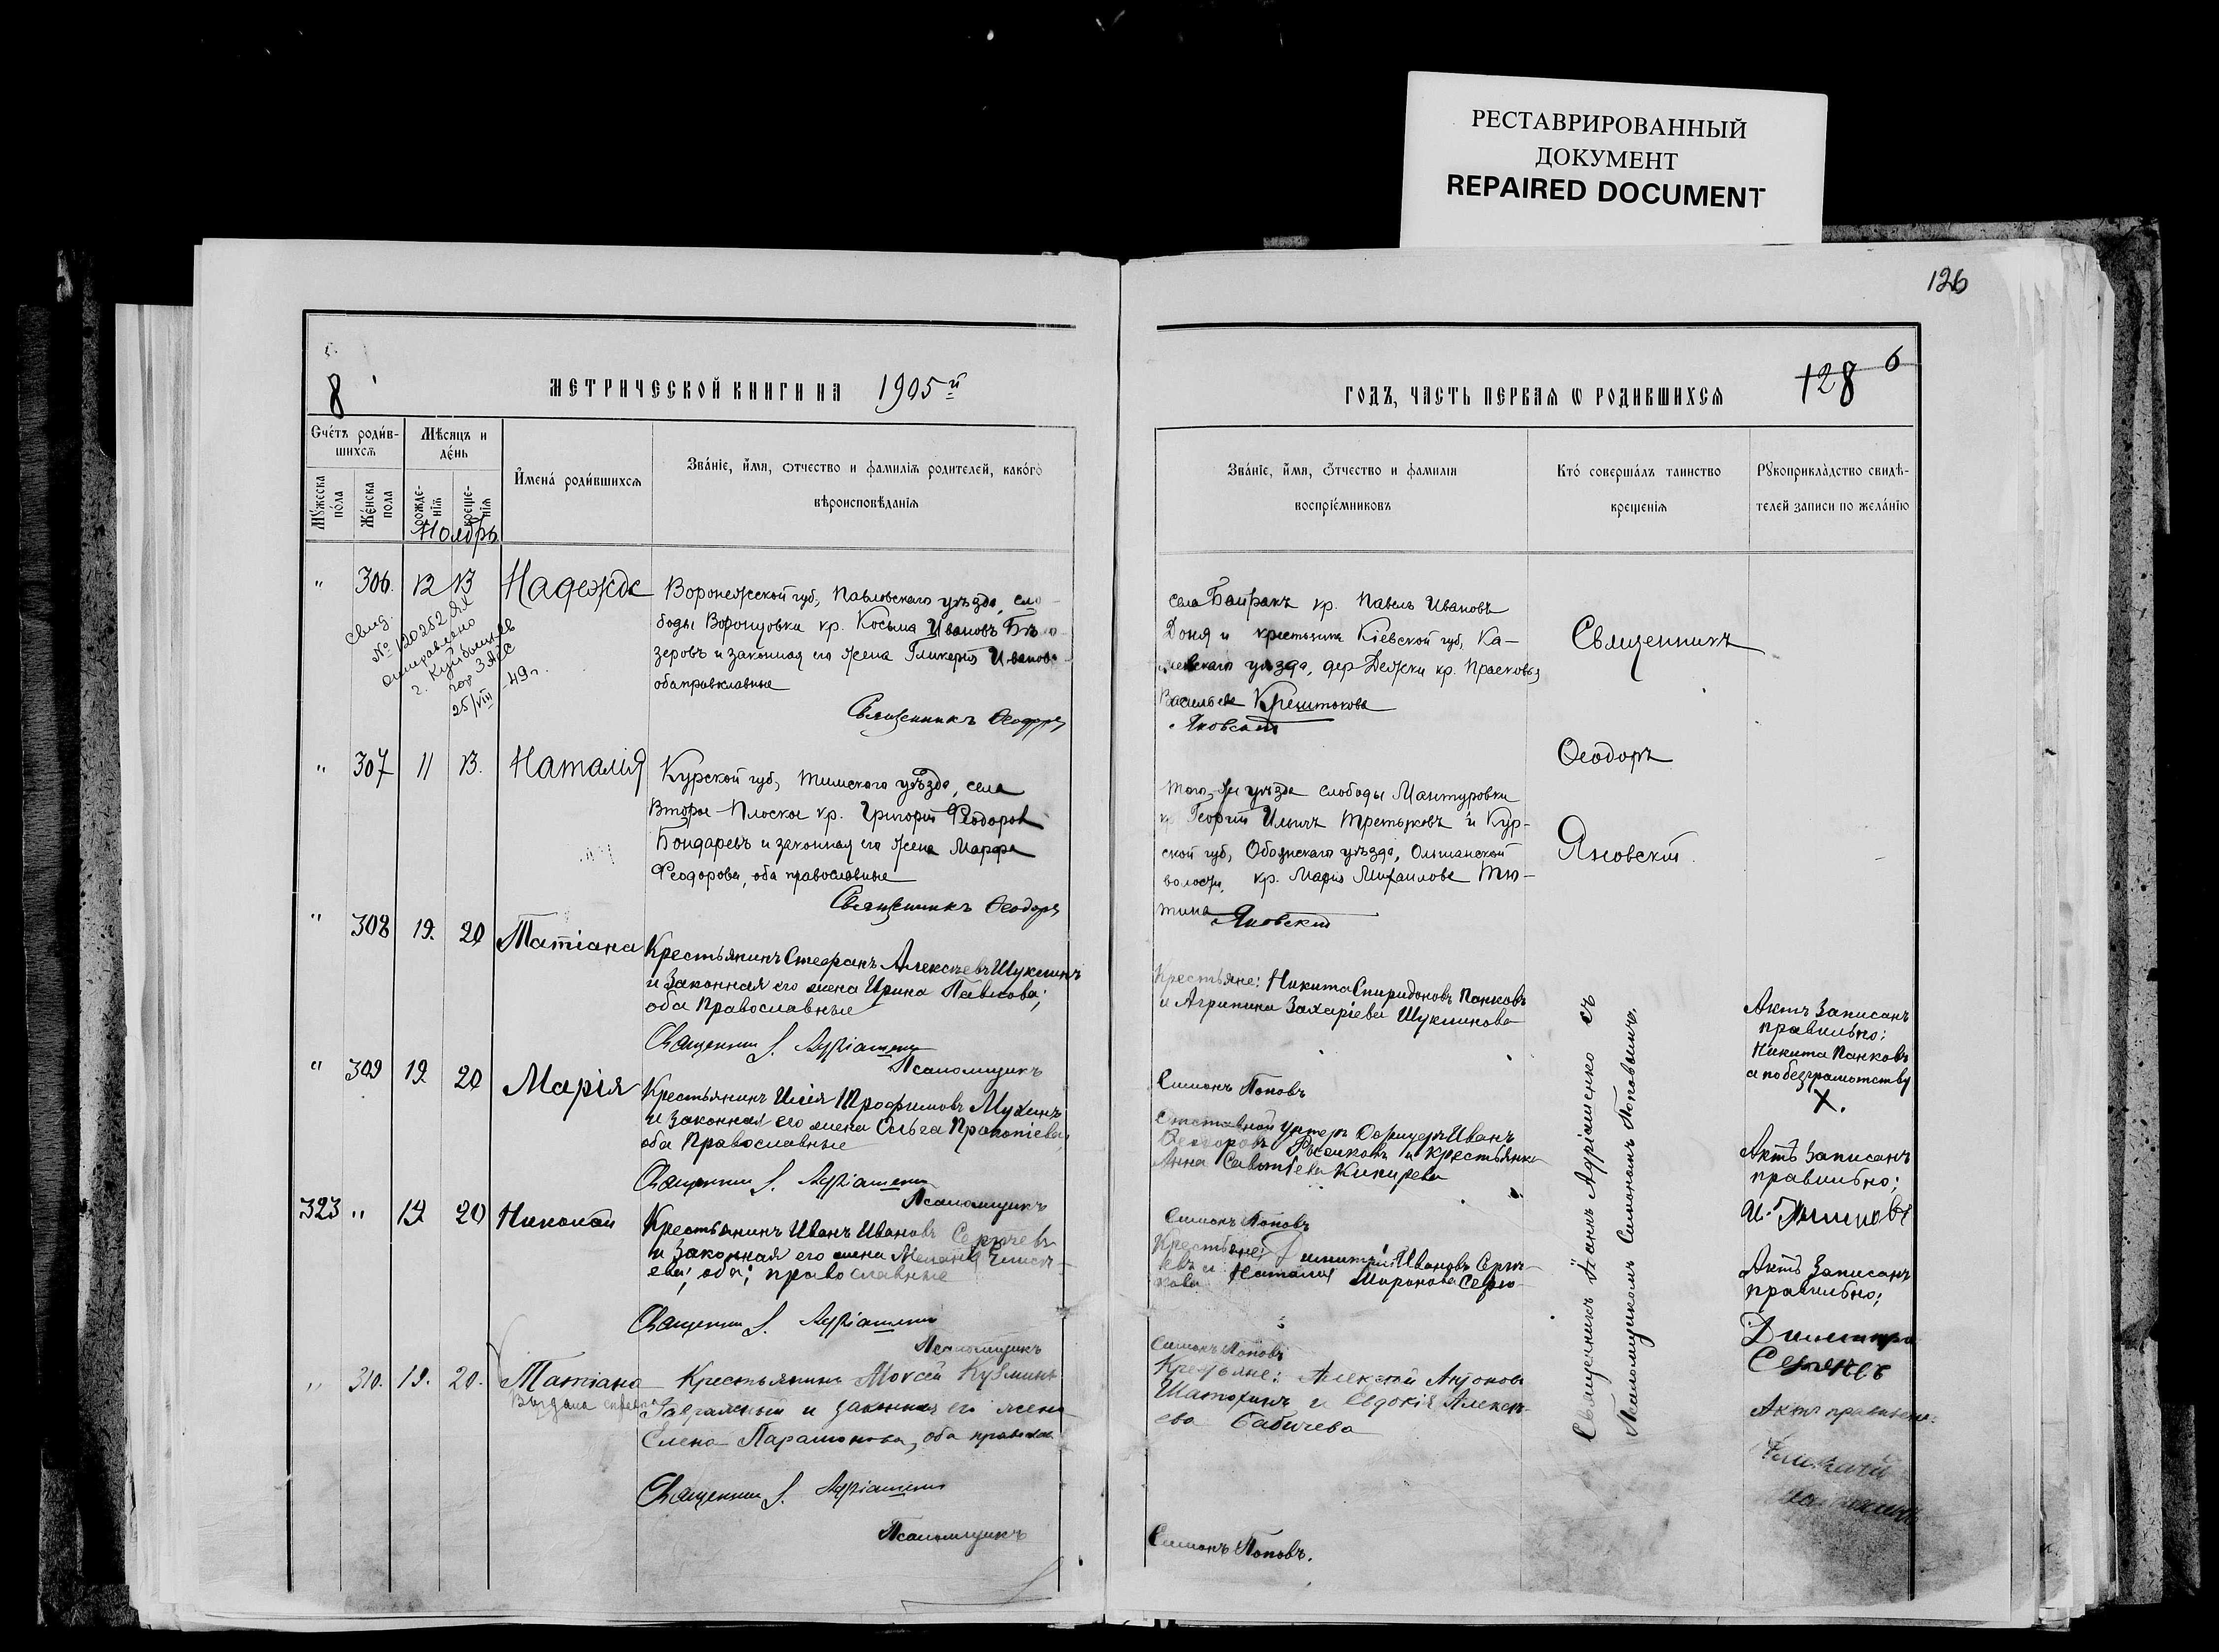 РЕСТАВРИРОВАННЫЙ
ДОКУМЕНТ
REPAIRED DOCUMENT
126
8
МЕТРИЧЕСКОЙ КНИГИ НА 1905й
ГОДЪ, ЧАСТЬ ПЕРВАЯ Ѡ РОДИВШИХСЯ
128 6
Счетъ родив-
шихся
Мѣсяцъ и
день
Мужеска
пола
Женска
пола
рожде-
нія
креще-
нія
Ноябрь
Имена родившихся
Званіе, имя, отчество и фамилія родителей, какого
вѣроисповѣданія
Званіе, имя, отчество и фамилія
воспріемниковъ
Кто совершалъ таинство
крещенія
Рукоприкладство свидѣ-
телей записи по желанію
" 306. 12 13 Надежда
Воронежской губ, Павловскаго уѣзда, сло-
боды Воронцовки кр. Косьма Ивановъ
зеровъ и законная его жена Гликерія Иванова
оба православные
Священникъ Ѳеодоръ
Свид.
№ 120252 ЯХ
отправлено
г. Куйбышевъ
гор ЗАГС
25/VIII-49г.
села Байракъ кр. Павелъ Ивановъ
Доня и крестьянка Кіевской губ, Ка-
невскаго уѣзда, дер кр. Прасковья
Васильева
Яновскій
Священникъ
Ѳеодоръ
Яновскій.
" 307 11 13. Наталія
Курской губ, Тимскаго уѣзда, села
Второе-Плоское кр. Григорій Ѳеодоровъ
Бондаревъ и законная его жена Марфа
Ѳеодорова, оба православные
Священникъ Ѳеодоръ
того-же уѣзда слободы Мантуровки
кр Георгій Ильичъ Третьяковъ и Кур-
ской губ, Обоянскаго уѣзда, Ольшанской
волости, кр. Марія Михаилова Тю-
тина
Яновскій
" 308 19. 20 Татіана
Крестьянинъ Стефанъ Алексѣевъ Шуклинъ
и законная его жена Ирина Павлова;
оба Православные
Священник І. Адріашенко
Псаломщикъ
Крестьяне: Никита Спиридоновъ Панковъ
и Агрипина Захаріева Шуклинова
Симонъ Поповъ
Священникъ Іоаннъ Адріашенко съ
Псаломщикомъ Симономъ Поповымъ.
Актъ записанъ
правильно:
Никита Панковъ
а по безграмотству
X.
" 309 19. 20 Марія
Крестьянинъ Илія Трофимовъ Мухинъ
и законная его жена Ольга Прокопіева,
оба Православные
Священник І. Адріашенко
Псаломщикъ
Отставной унтеръ Офицеръ Иванъ
Ѳеодоровъ и крестьянка
Анна
Симонъ Поповъ
Актъ записанъ
правильно;
И.
323 " 19 20 Николай
Крестьянинъ Иванъ Ивановъ Сергѣевъ
и законная его жена Меланія Елисѣ-
ева; оба; православные
Священник І. Адріашенко
Псаломщикъ
Крестьяне: Димитрій Ивановъ Сергѣ-
евъ и Наталія Миронова
Симонъ Поповъ
Актъ записанъ
правильно;
Димитра
" 310. 19. 20. Татіана
Выдана справка
Крестьянинъ Моѵсей Кузминъ
и законная его жена
Елена Парамонова, оба правосл
Священник І. Адріашенко
Псаломщикъ
Крестьяне: Алексей Антоновъ
Шатохинъ и Евдокія Алексѣ-
ева Бабичева
Симонъ Поповъ.
Актъ правильно: